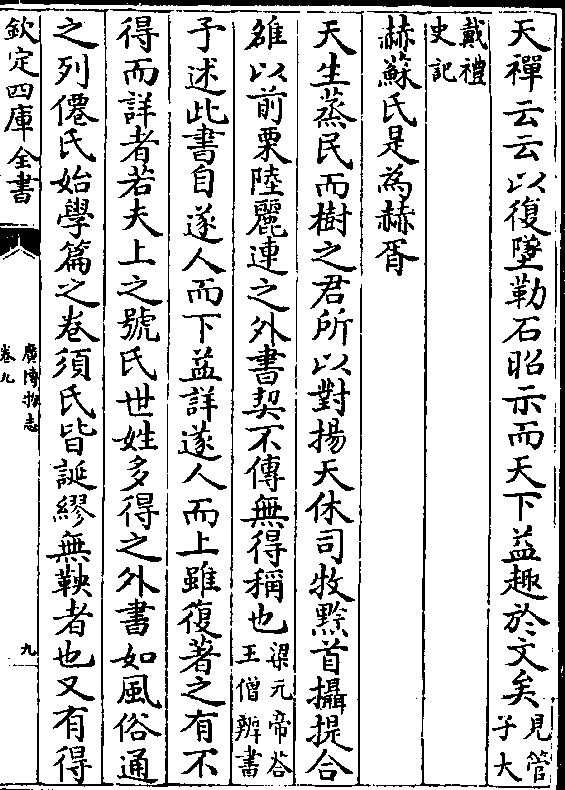 天禪云云以復墜勒石昭示而天下益趣於文矣見管子大
戴禮史記
赫蘇氏是為赫胥
天生蒸民而樹之君所以對揚天休司牧黔首攝提合
雒以前栗陸麗連之外書契不傳無得稱也梁元帝答王僧辨書
予述此書自遂人而下益詳遂人而上雖復著之有不
得而詳者若夫上之號氏世姓多得之外書如風俗通
之列僊氏始學篇之卷須氏皆誕繆無鞅者也又有得
欽定四庫全書
廣博物志
卷九
九